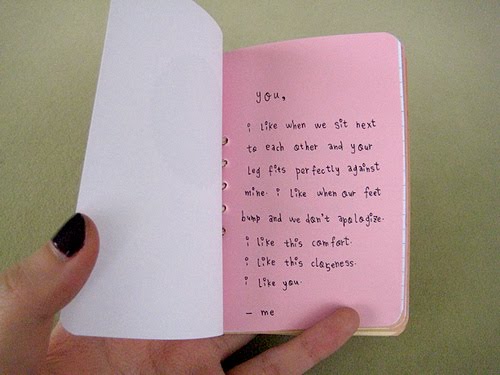 you,
i like when we sit next
to each other and your
leg fits perfectly against
mine. i like when our feet
bump and we don't apologize.
i like this comfort.
i like this closeness.
i like you.
- me